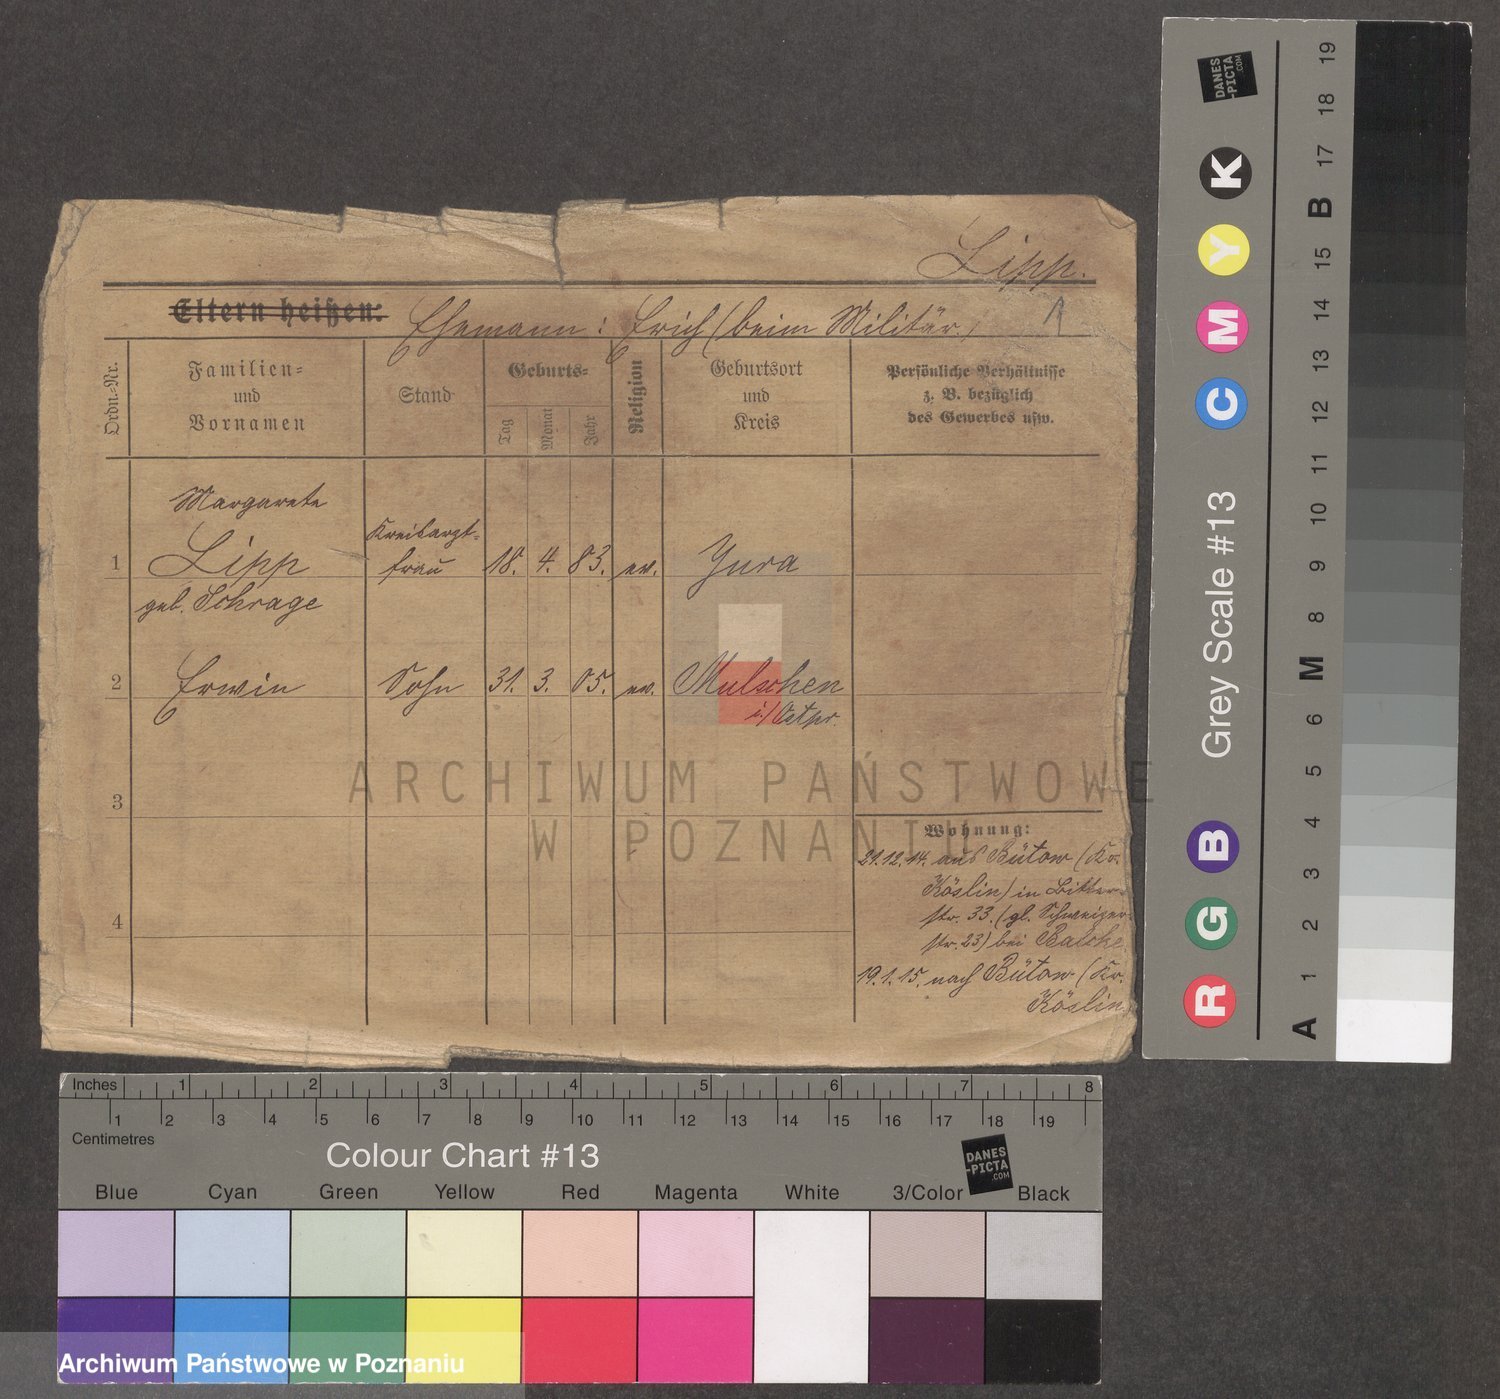 Lipp.
Eltern heißen: Ehemann: Erich (beim Militär.)
1
Ordn.-Nr.
Familien-
und
Vornamen
Stand
Geburts-
Tag
Monat
Jahr
Religion
Geburtsort
und
Kreis
Persönliche Verhältnisse
z. B. bezüglich
des Gewerbes usw.
Margarete
1 Lipp Kreisarzt- frau 18. 4. 83. ev. Jura
geb. Schrage
2 Erwin Sohn 31. 3. 05. ev. Mulschen
i/Ostpr.
3
4
Wohnung:
21.12.14. aus Bütow (Kr.
Köslin) in Bitter-
str. 33. (gl. Schweizer-
str. 23) bei Balcke
19.1.15. nach Bütow (Kr.
Köslin
ARCHIWUM PAŃSTWOWE
W POZNANIU
DANES
-PICTA
.COM
K
Y
M
C
Grey Scale #13
B
G
R
19
18
17
B
15
14
13
12
11
10
9
8
M
6
5
4
3
2
1
A
Inches 1 2 3 4 5 6 7 8
1 2 3 4 5 6 7 8 9 10 11 12 13 14 15 16 17 18 19
Centimetres
Colour Chart #13
DANES
-PICTA
.COM
Blue Cyan Green Yellow Red Magenta White 3/Color Black
Archiwum Państwowe w Poznaniu